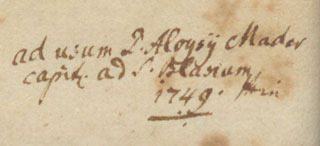 ad usum P. Aloysy Mader
capit. ad S. Blasium,
1749.